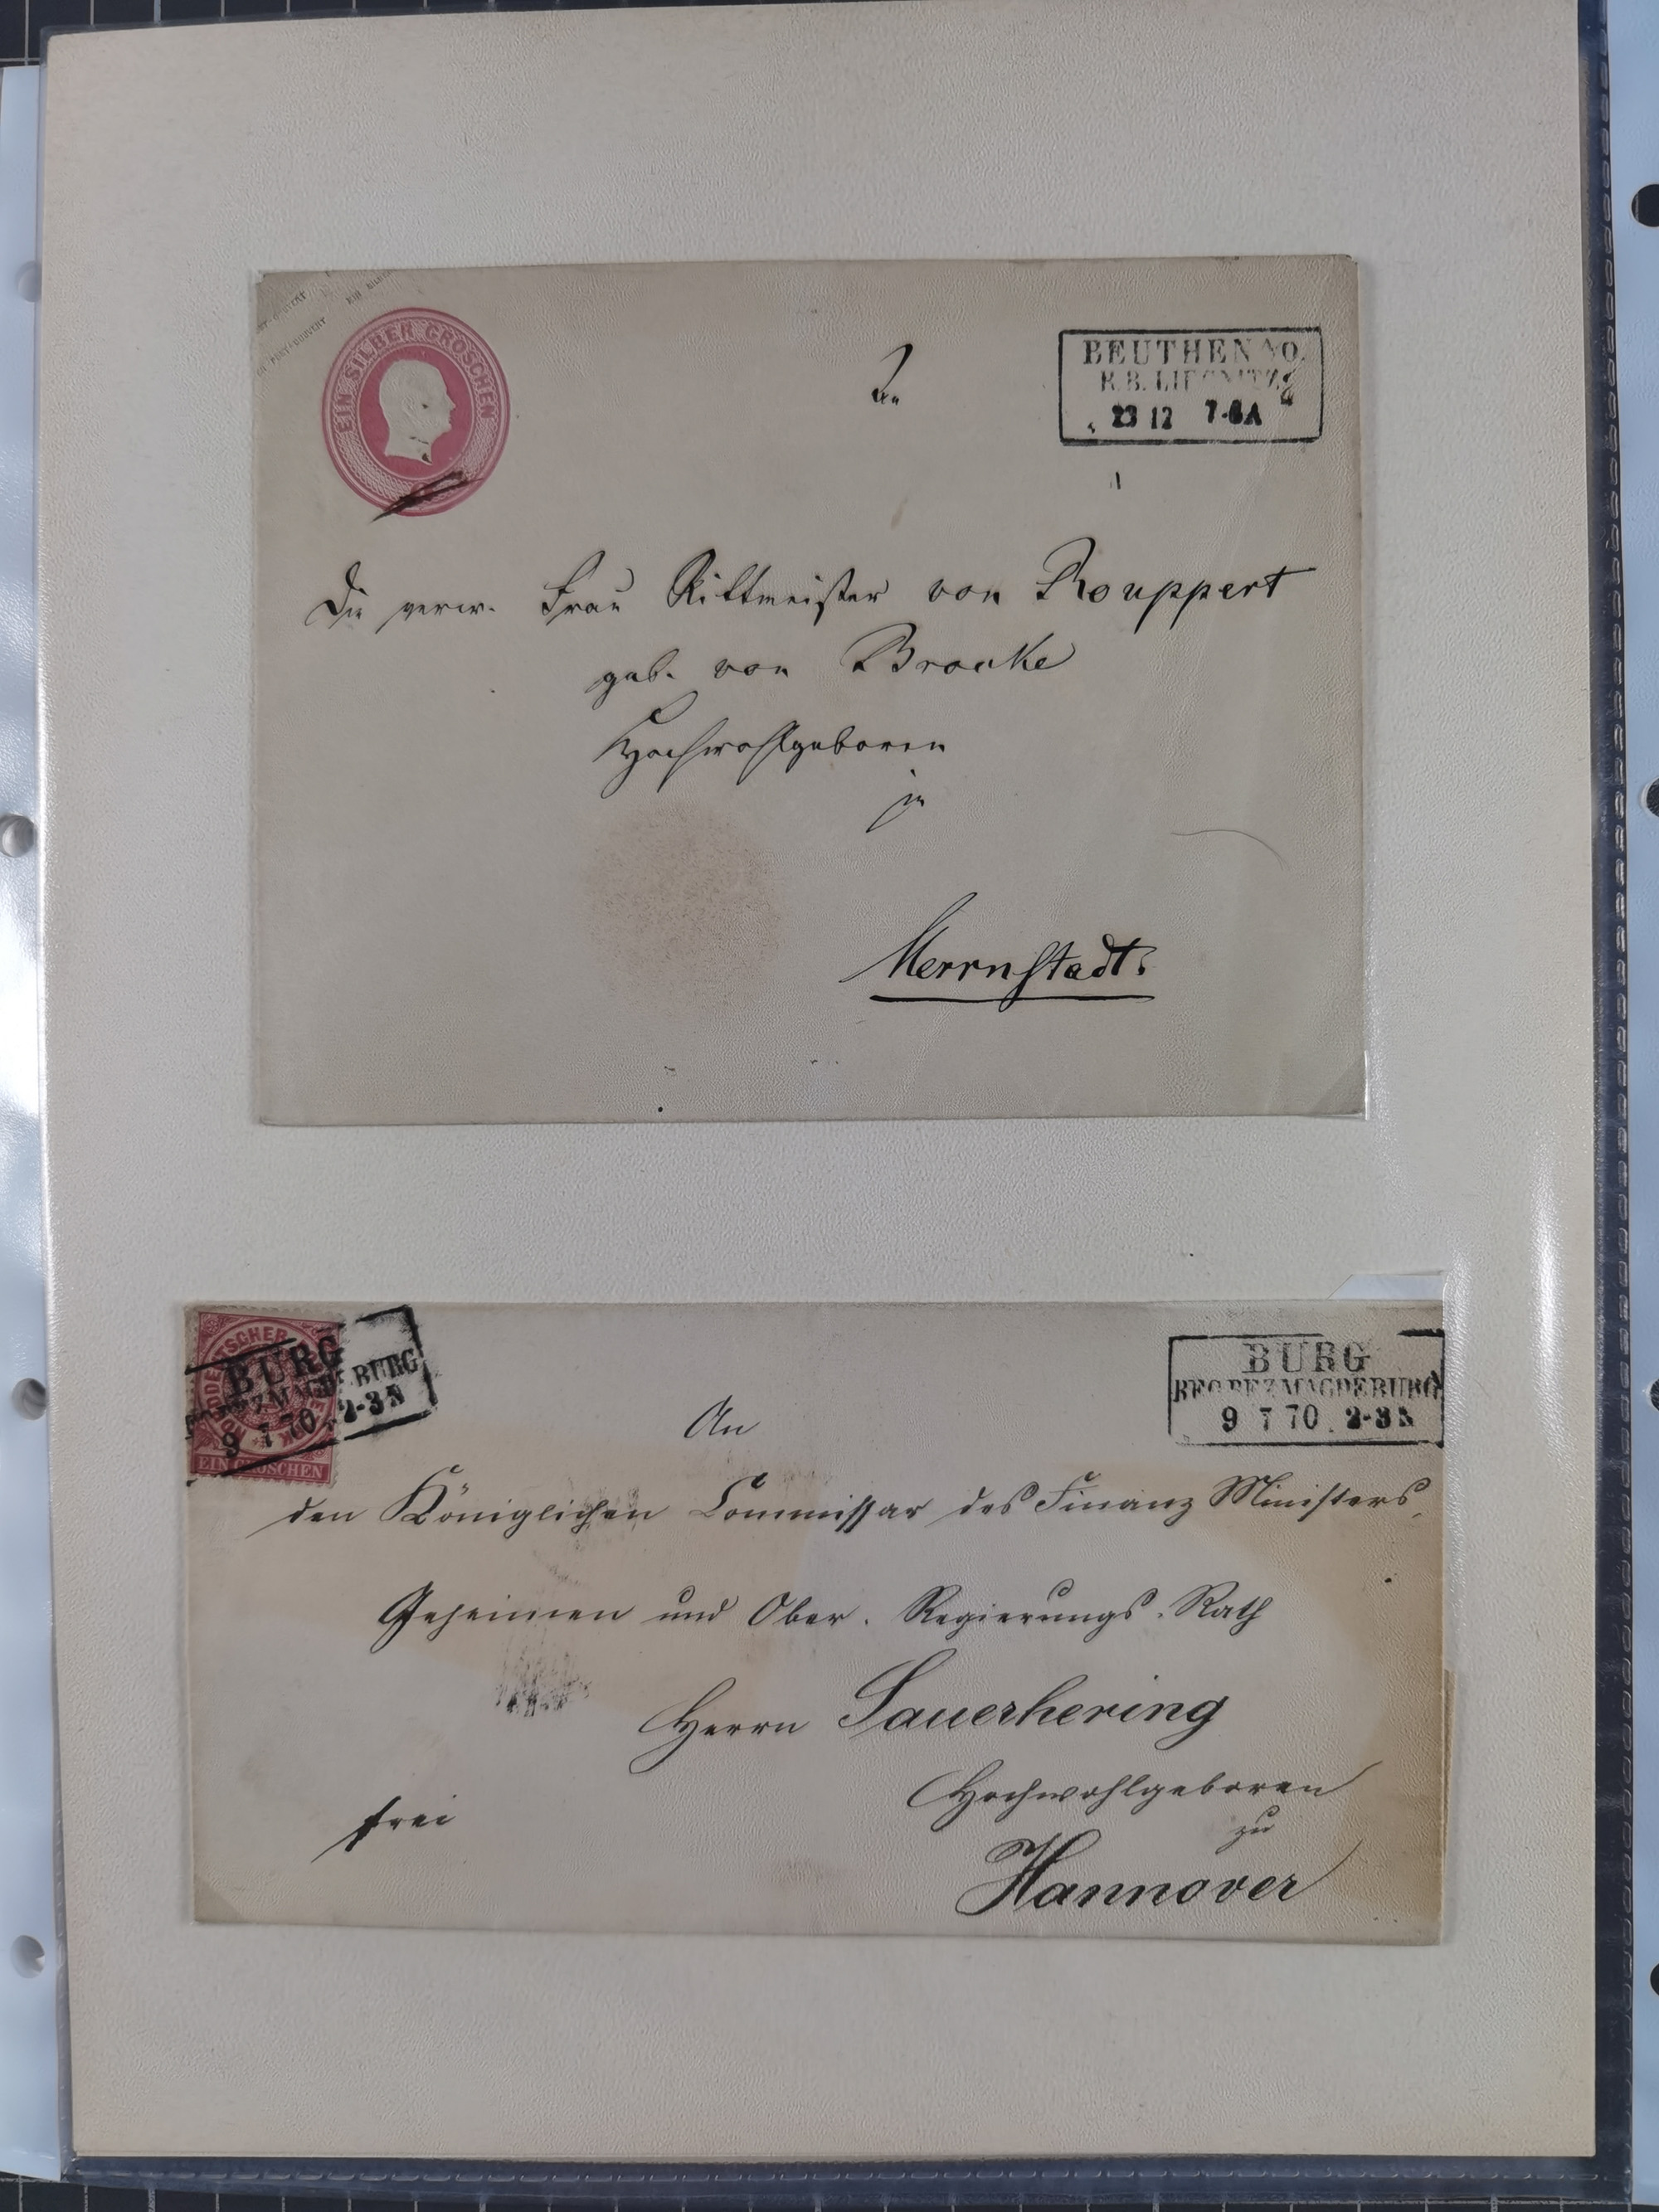 POST-COUVERT
EIN SILBER GROSCHEN
An
BEUTHEN A/O.
R. B. LIEGNITZ
23 12 7-8A
Die verw. Frau Rittmeister von Rouppert
geb. von Bracke
Hochwohlgeboren
in
Herrnstadt.
EIN GROSCHEN
BURG
REG. BEZ. MAGDEBURG
9 7 70 2-3N
BURG
REG BEZ MAGDEBURG
9 7 70 2-3N
An
den Königlichen Commissar des Finanz Ministers,
Geheimen und Ober-Regierungs-Rath
Herrn Sauerhering
Hochwohlgeboren
frei
zu
Hannover